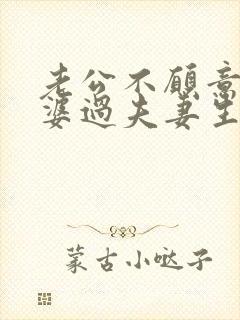 老公不願意
婆過夫妻生
蒙古小哒子